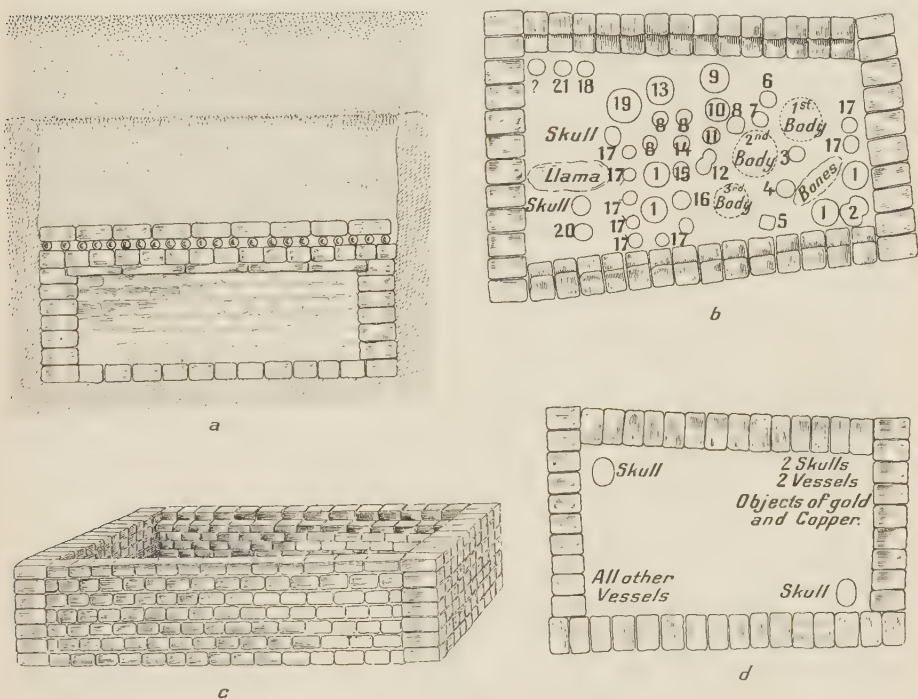 a
? 21 18
19 13 9 6
8 8 10 8 7 1st Body 17
Skull 8 14 11 2nd Body 3 17
17
Llama 17 1 15 12 4 Bones 1
Skull 17 1 16 3rd Body 5 1 2
20 17 17 17
b
c
Skull
2 Skulls
2 Vessels
Objects of gold
and Copper.
All other
Vessels
Skull
d